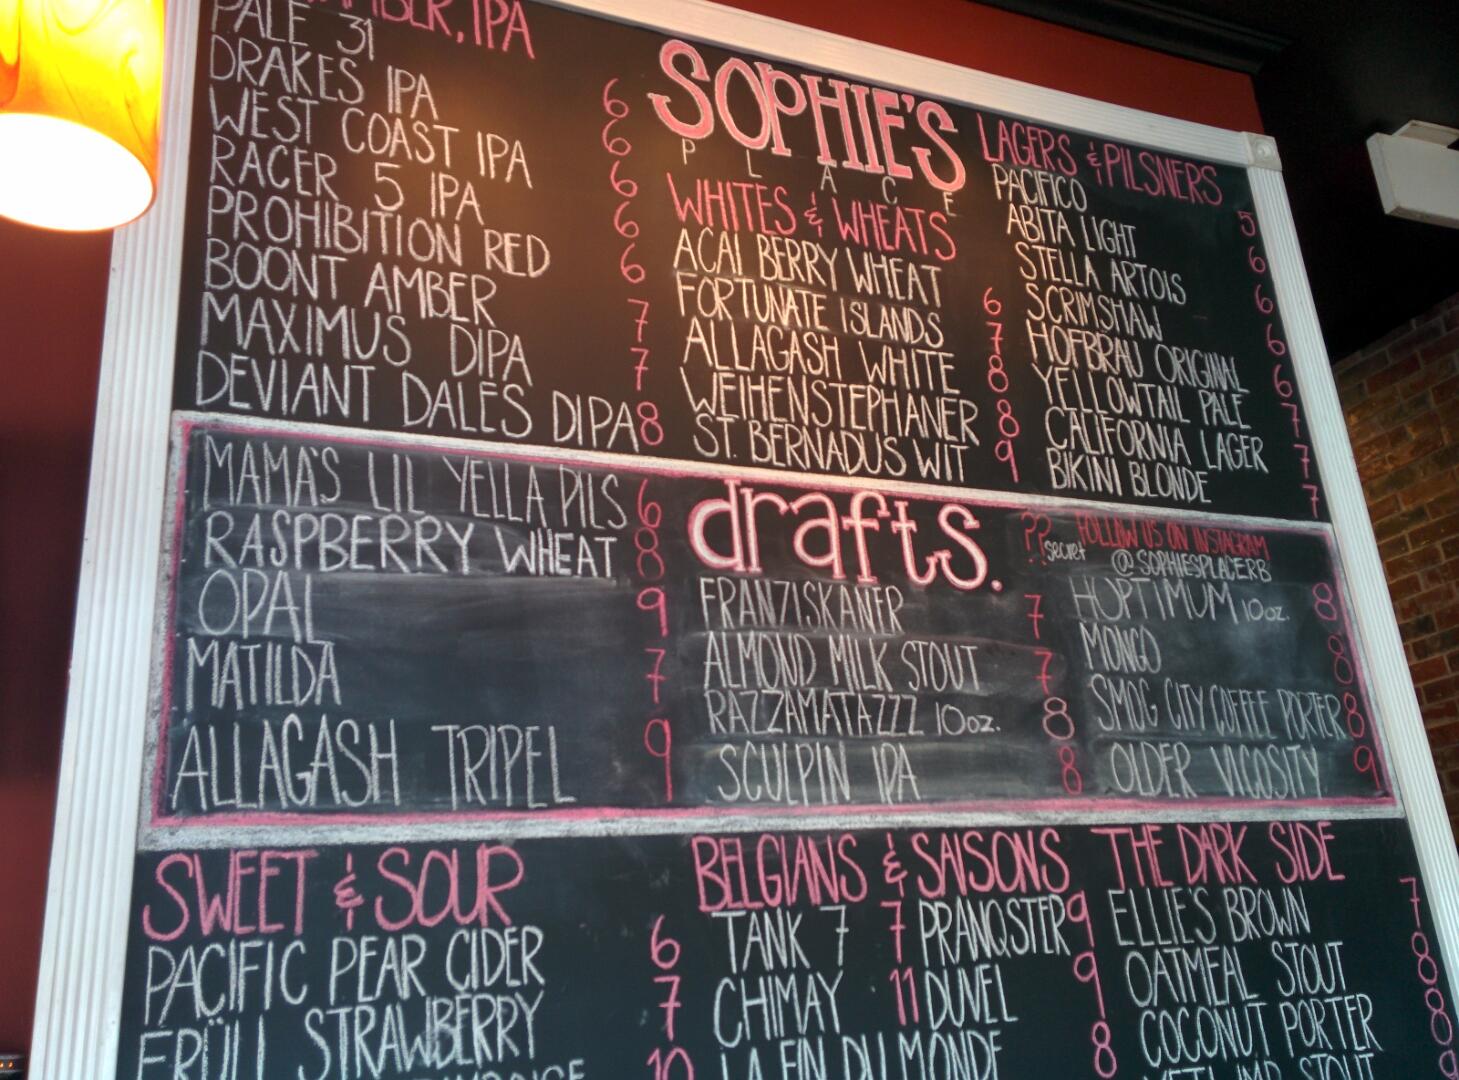 AMBER, IPA
PALE 31
DRAKES IPA 6
WEST COAST IPA 6
RACER 5 IPA 6
PROHIBITION RED 6
BOONT AMBER 6
MAXIMUS DIPA 7
DEVIANT DALES DIPA 8
7
SOPHIE'S
PLACE
WHITES & WHEATS
ACAI BERRY WHEAT 6
FORTUNATE ISLANDS 7
ALLAGASH WHITE 8
WEIHENSTEPHANER 8
ST. BERNADUS WIT 9
LAGERS & PILSNERS
PACIFICO 5
ABITA LIGHT 6
STELLA ARTOIS 6
SCRIMSHAW 6
HOFBRAU ORIGINAL 6
YELLOWTAIL PALE 7
CALIFORNIA LAGER 7
BIKINI BLONDE 7
MAMA'S LIL YELLA PILS 6
RASPBERRY WHEAT 8
OPAL 9
MATILDA 7
ALLAGASH TRIPEL 9
drafts.
FRANZISKANER 7
ALMOND MILK STOUT 7
RAZZAMATAZZZ 10oz. 8
SCULPIN IPA 8
?? secret
FOLLOW US ON INSTAGRAM
@SOPHIESPLACERB
HOPTIMUM 10oz. 8
MONGO 8
SMOG CITY COFFEE PORTER 8
OLDER VICOSITY 9
SWEET & SOUR
PACIFIC PEAR CIDER 6
FRÜLI STRAWBERRY 7
10
BELGIANS & SAISONS
TANK 7 7
CHIMAY 11
LA FIN DU MONDE 8
PRANQSTER 9
DUVEL 9
THE DARK SIDE
ELLIE'S BROWN 7
OATMEAL STOUT 8
COCONUT PORTER 8
STOUT 9